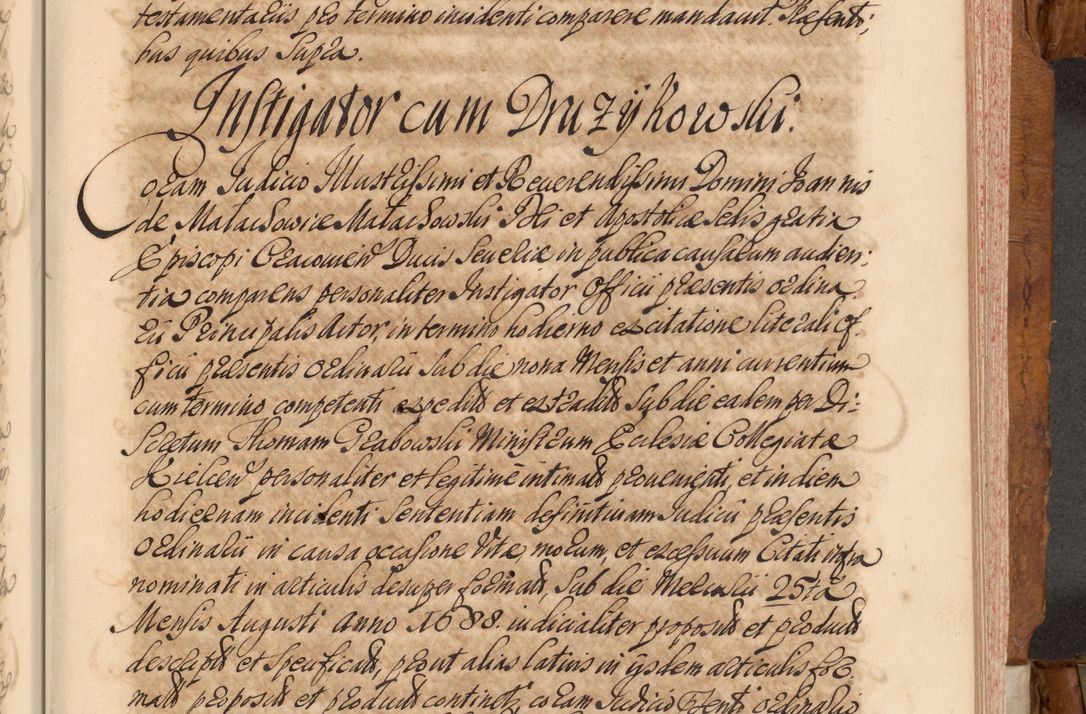 testamentariis pro termino incidenti comparere mandavit. Præsenti;
bus quibus supra.
Instigator cum Druzÿkowski.
Coram Judicio Illustrissimi et Reverendissimi Domini Joannis
de Małachowice Małachowski Dei et Apostolicæ Sedis gratia
Episcopi Cracovien Ducis Severiæ in publica causarum audien:
tia comparens personaliter Instigator Officii præsentis ordina
rii Principalis Actor, in termino hodierno ex citatione literali of
ficii præsentis ordinarii sub die nona Mensis et anni currentium
cum termino competenti expedita et extradita sub die eadem per Di:
scretum Thomam Grabowski Ministrum Ecclesiæ Collegiatæ
Kielcen personaliter et legitime intimata provenienti, et in diem
hodiernam incidenti Sententiam definitivam Judicii præsentis
Ordinarii in causa occasione Vitæ, morum, et excessuum Citati infra
nominati in articulis desuper formatis, sub die Mercurii 25ta
Mensis Augusti anno 1688. judicialiter propositis et productis
descriptis et specificatis, prout alias latius in ijsdem articulis for
matis propositis et productis continetur, coram Judicio Præsenti ordinario